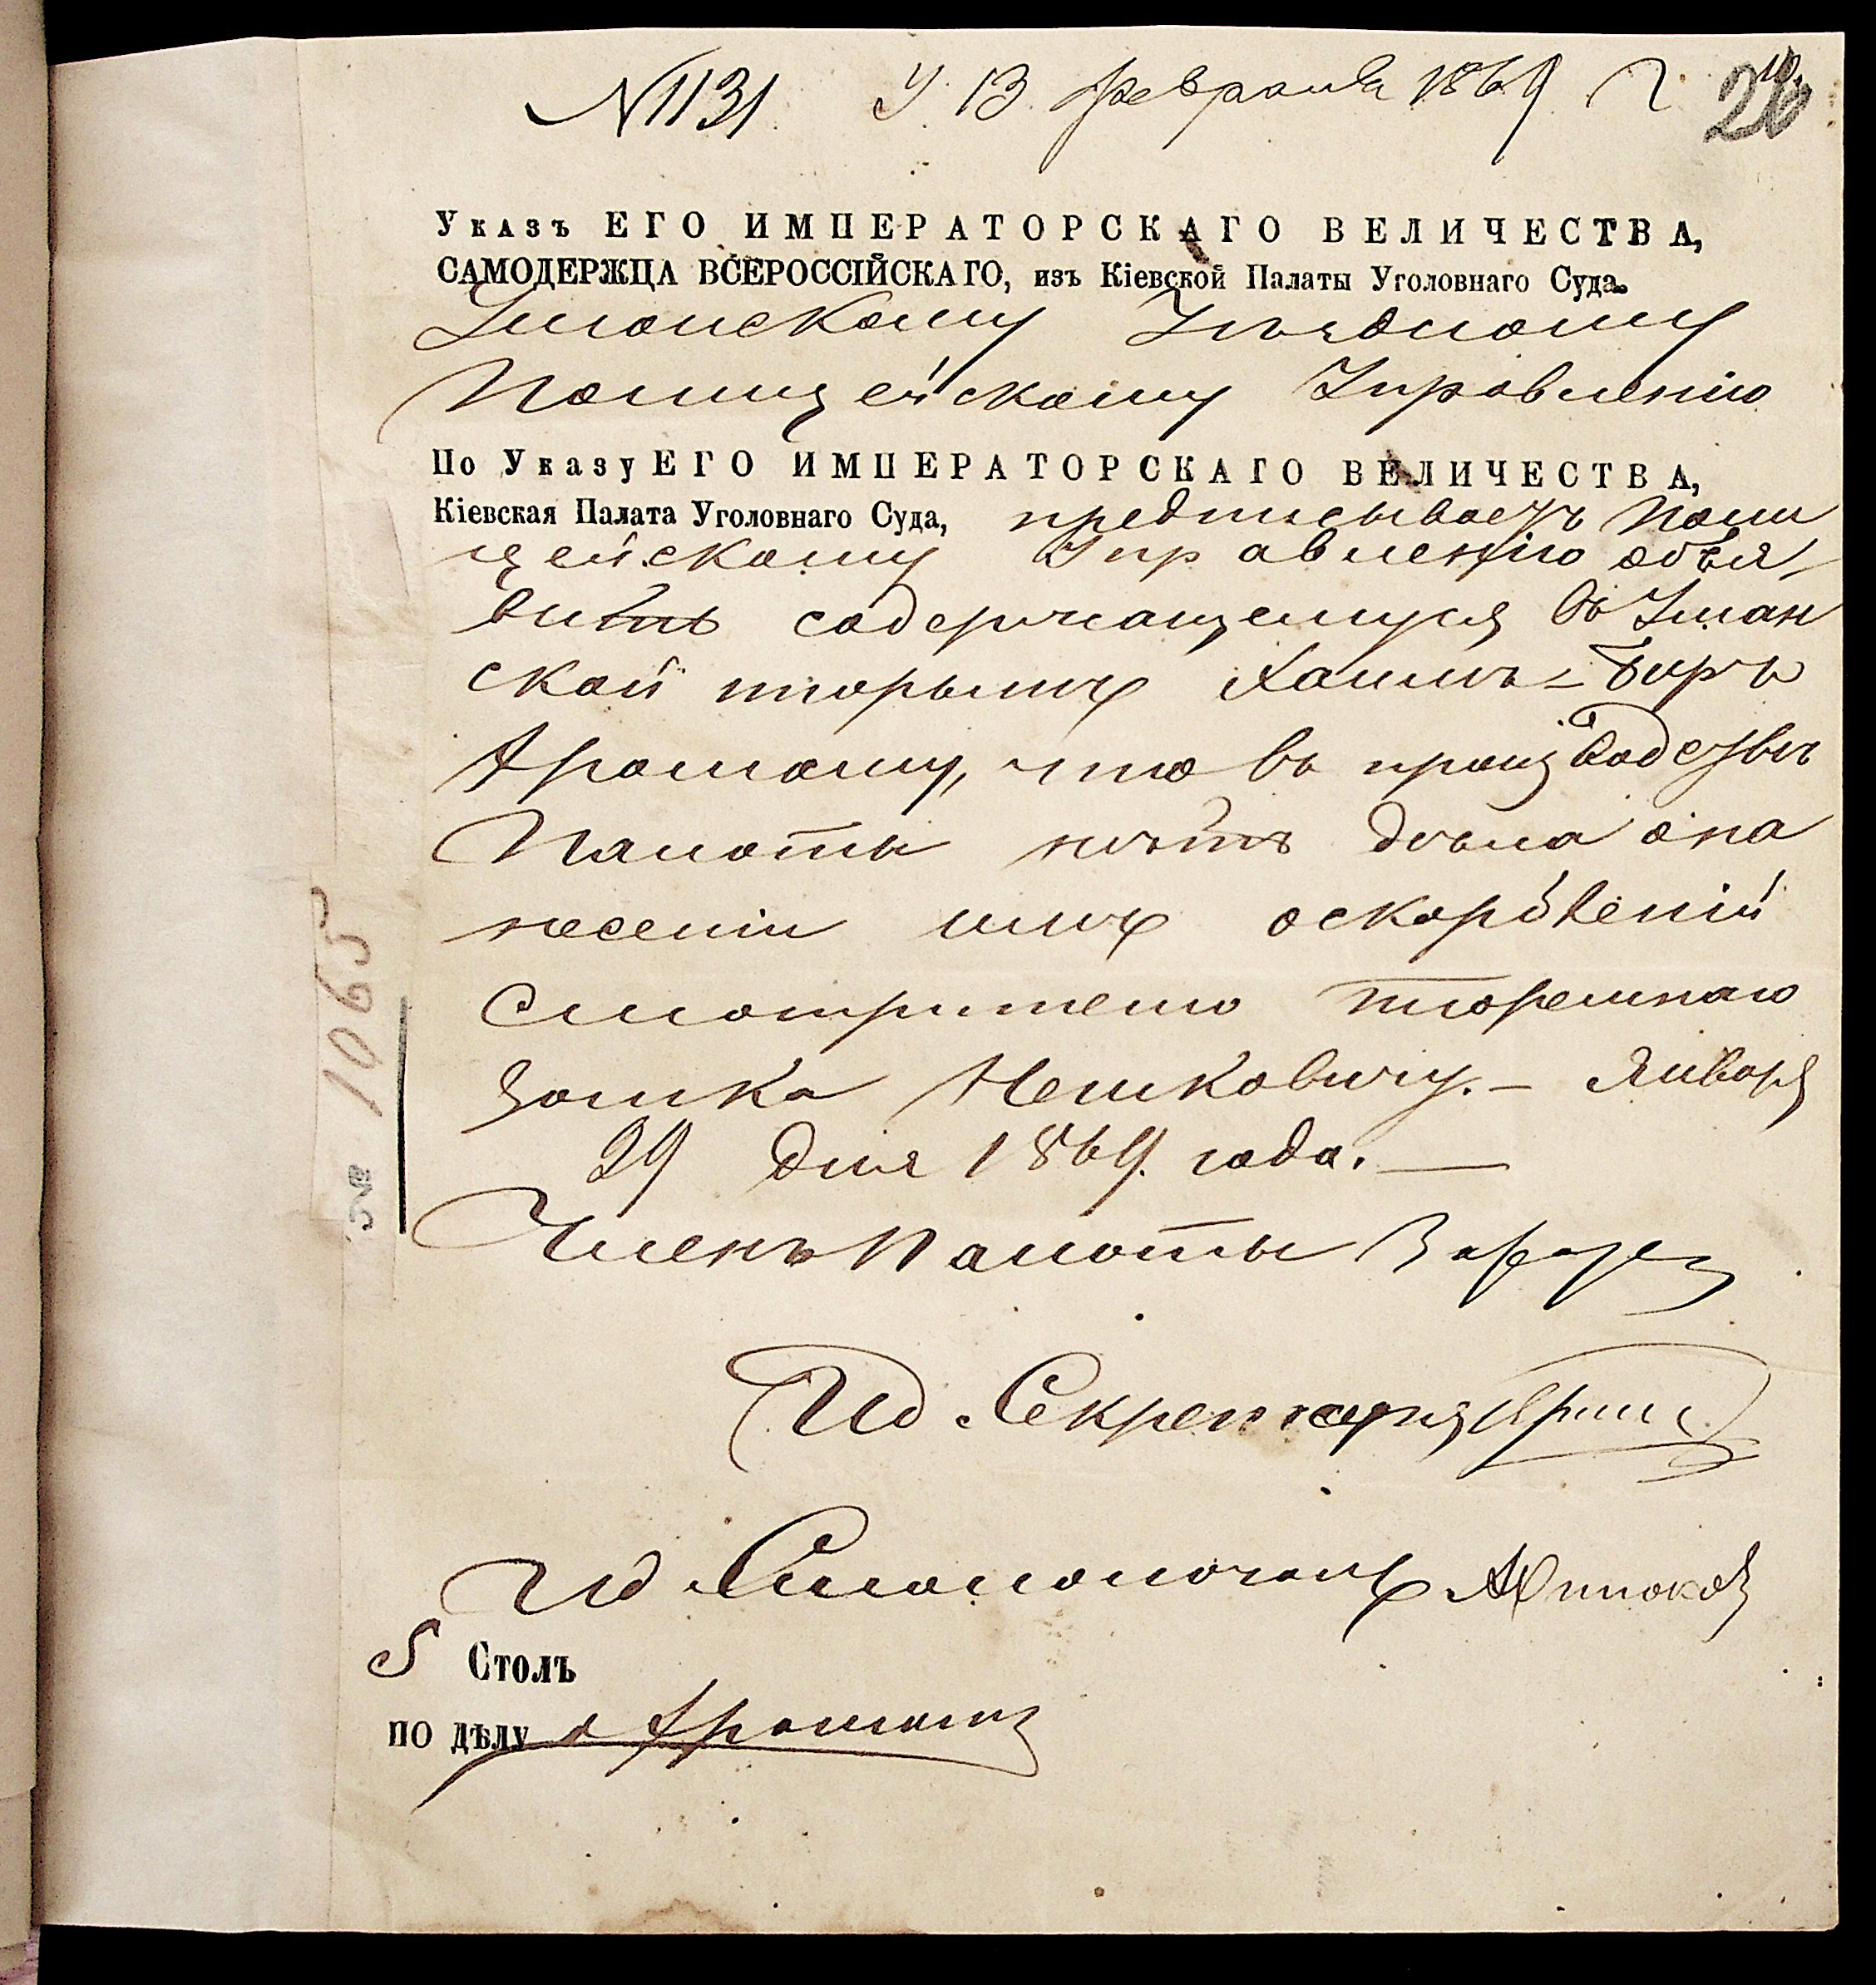 № 1131 У. 13 февраля 1869 г 26
Указъ ЕГО ИМПЕРАТОРСКАГО ВЕЛИЧЕСТВА,
САМОДЕРЖЦА ВСЕРОССІЙСКАГО, изъ Кіевской Палаты Уголовнаго Суда.
Уманскому Уѣздному
Полицейскому Управленію
По Указу ЕГО ИМПЕРАТОРСКАГО ВЕЛИЧЕСТВА,
Кіевская Палата Уголовнаго Суда, предписываетъ Поли
цейскому Управленію объя
вить содержащемуся въ Уман
ской тюрьмѣ Хаимъ-Биръ
Арамому, что въ производствѣ
Палаты нѣтъ дѣла о на
несеніи имъ оскорбленій
смотрителю тюремнаго
замка Нешковичу. — Января
29 дня 1869 года. —
Членъ Палаты
Ид Секретаря
Ид Столоначаль
5 Столъ
по дѣлу о
№ 1065